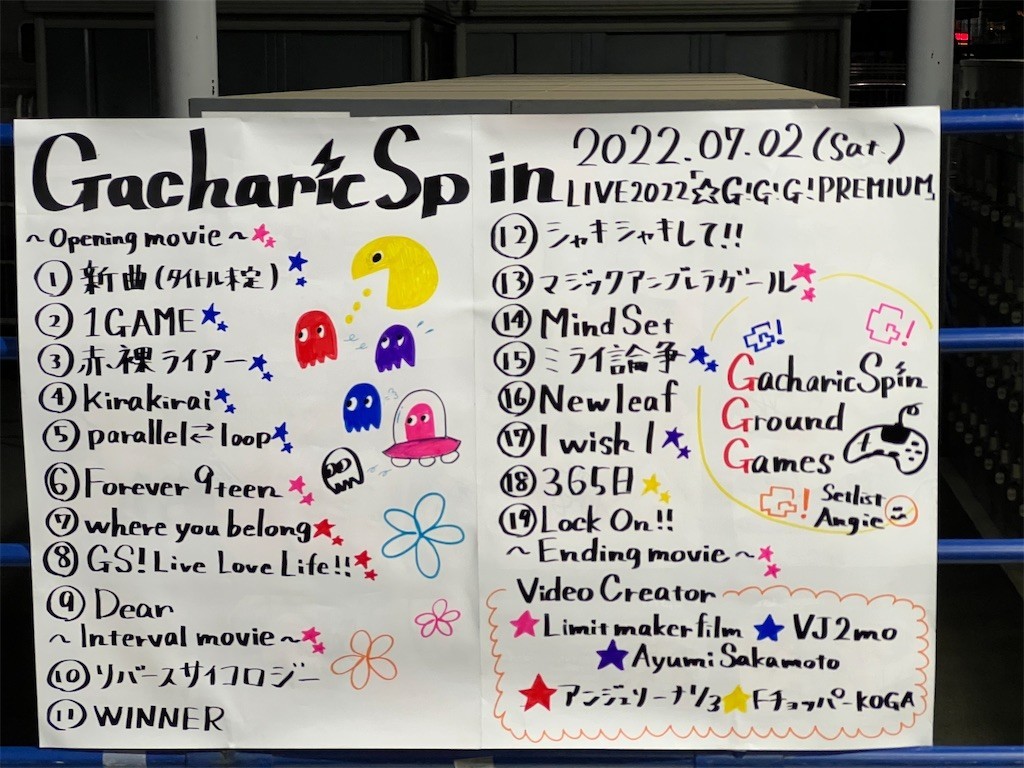 Gacharic Spin
2022.07.02 (Sat.)
LIVE2022「☆G!G!G!PREMIUM」
~Opening movie~
① 新曲(タイトル未定)
② 1GAME
③ 赤裸ライアー
④ kirakirai
⑤ parallel⇄loop
⑥ Forever 9teen
⑦ where you belong
⑧ GS!Live Love Life!!
⑨ Dear
~Interval movie~
⑩ リバースサイコロジー
⑪ WINNER
⑫ シャキシャキして!!
⑬ マジックアンブレラガール
⑭ MindSet
⑮ ミライ論争
⑯ Newleaf
⑰ I wish I
⑱ 365日
⑲ Lock On!!
~Ending movie~
G!
G!
GacharicSpin
Ground
Games
G!
Setlist
Angie
Video Creator
★Limit maker film ★VJ2mo
★Ayumi Sakamoto
★アンジェリーナ1/3 ★Fチョッパー KOGA